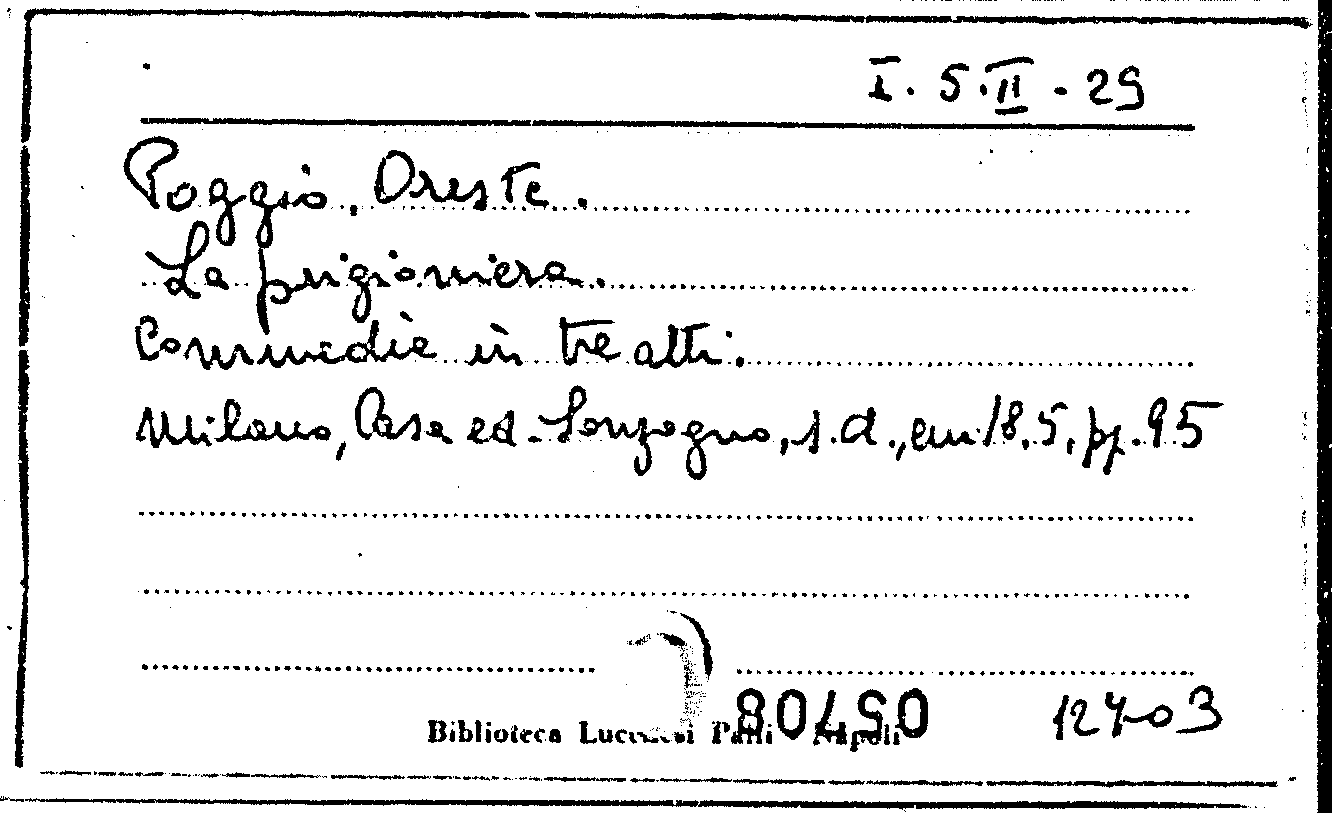 I. 5. II - 29
Poggio, Oreste.
La prigioniera.
Commedia in tre atti.
Milano, Casa ed. Sonzogno, s.d., cm. 18,5, pp. 95
Biblioteca Lucchesi Palli Napoli
057080
12403